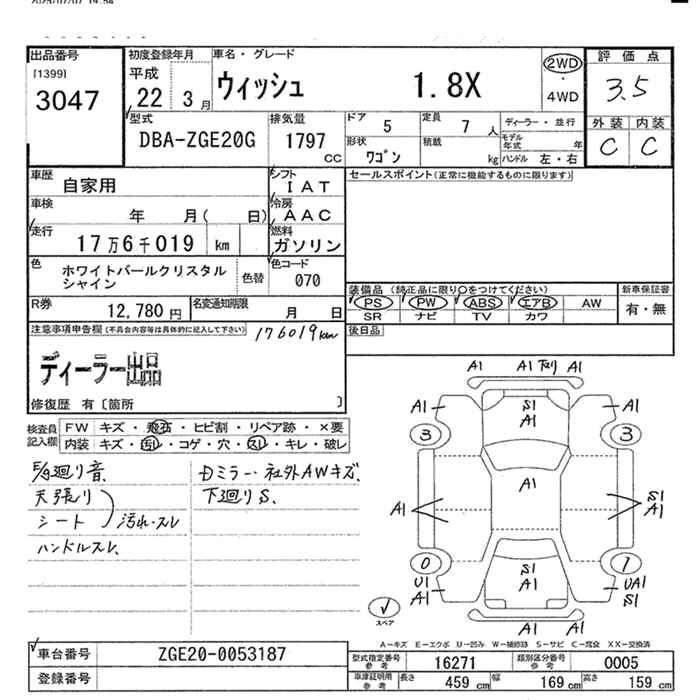 出品番号
[1399]
3047
初度登録年月
平成
22 3月
車名・グレード
ウィッシュ 1.8X
2WD
・
4WD
評価点
3.5
外装 内装
C C
型式
DBA-ZGE20G
排気量
1797
CC
ドア 5
定員 7 人
形状 ワゴン
積載 kg
ディーラー・並行
モデル年式 年
ハンドル 左・右
車歴 自家用
シフト IAT
車検 年 月( 日)
冷房 AAC
走行 17万6千019 km
燃料 ガソリン
色 ホワイトパールクリスタル
シャイン
色替
色コード 070
R券 12,780 円
名変通知期限 月 日
セールスポイント(正常に機能するものに限ります)
装備品 (純正品に限り○をつけてください)
PS PW ABS エアB AW
SR ナビ TV カワ
新車保証書
有・無
後日品
注意事項申告欄(不具合内容等は具体的に記入して下さい)
176019km
ディーラー出品
修復歴 有〔箇所 〕
検査員記入欄
FW キズ・飛石・ヒビ割・リペア跡・×要
内装 キズ・汚レ・コゲ・穴・スレ・キレ・破レ
廻り音.
天張り
シート
汚れ・スレ
ハンドルスレ.
Dミラー・社外AWキズ.
下廻りS.
A1 A1 下リ A1
A1 S1 A1
A1
3 3
A1
A1 S1
A1
0 1
U1 S1 UA1
A1 A1 S1
A1 A1
スペア
A-キズ E-エクボ U-凹み W-補修跡 S-サビ C-腐食 XX-交換済
車台番号 ZGE20-0053187
登録番号
型式指定番号 参考 16271
類別区分番号 参考 0005
車庫証明用 参考 長さ 459 cm 幅 169 cm 高さ 159 cm